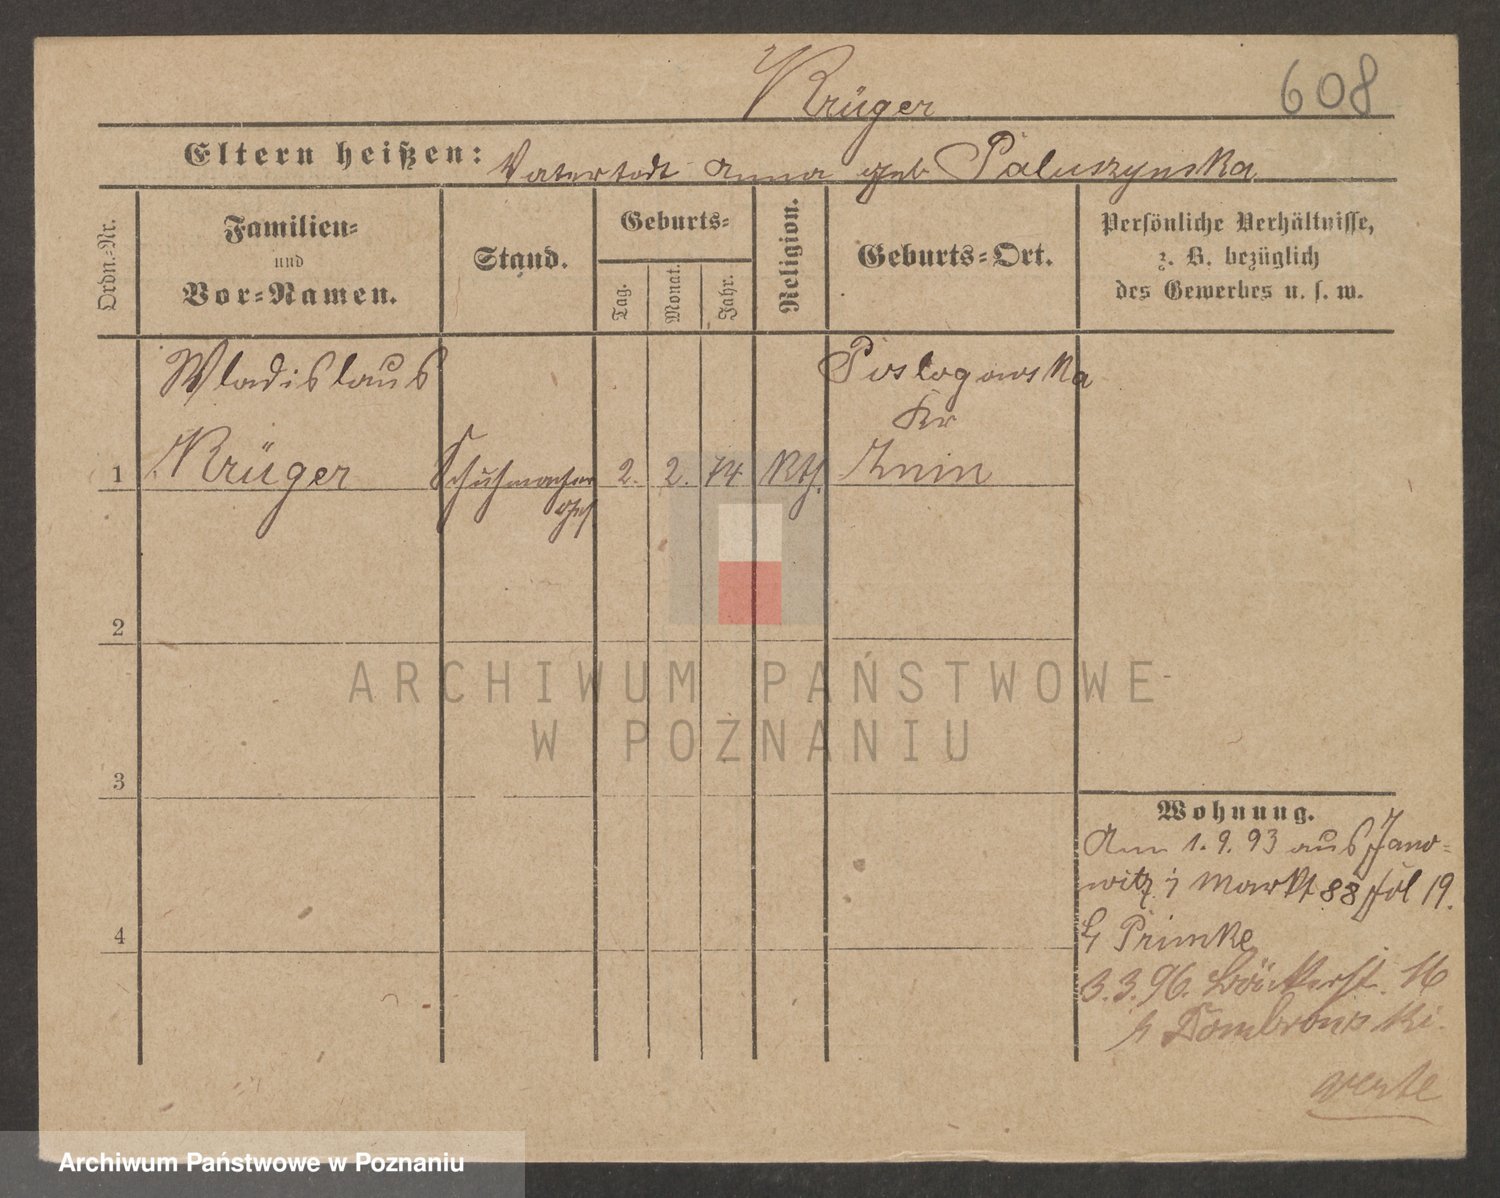 Krüger
608
Eltern heißen: Vater todt Anna geb Paluszynska
Ordn.-Nr.
Familien-
und
Vor-Namen.
Stand.
Geburts-
Tag.
Monat.
Jahr.
Religion.
Geburts-Ort.
Persönliche Verhältnisse,
z. B. bezüglich
des Gewerbes u. s. w.
Wladislaus
Krüger
Schuhmacher
ges
2. 2. 74 Kth.
Poslogowska
Kr
Znin
1
2
3
4
Wohnung.
Am 1.9.93 aus Jano-
witz Markt 88 19.
Primke
3.3.96. Bäckerst. 16
Dombrowski.
wende
ARCHIWUM PAŃSTWOWE
W POZNANIU
Archiwum Państwowe w Poznaniu